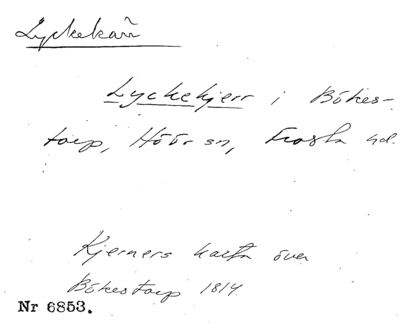 Lyckekärr
Lyckekjerr i Bökes-
torp, Höör sn, Frosta hd.
Kjerners karta över
Bökestorp 1814.
Nr 6853.